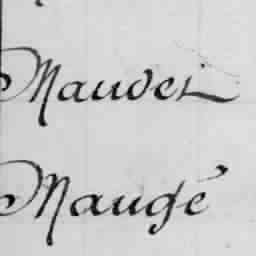 Maudet
Maugé